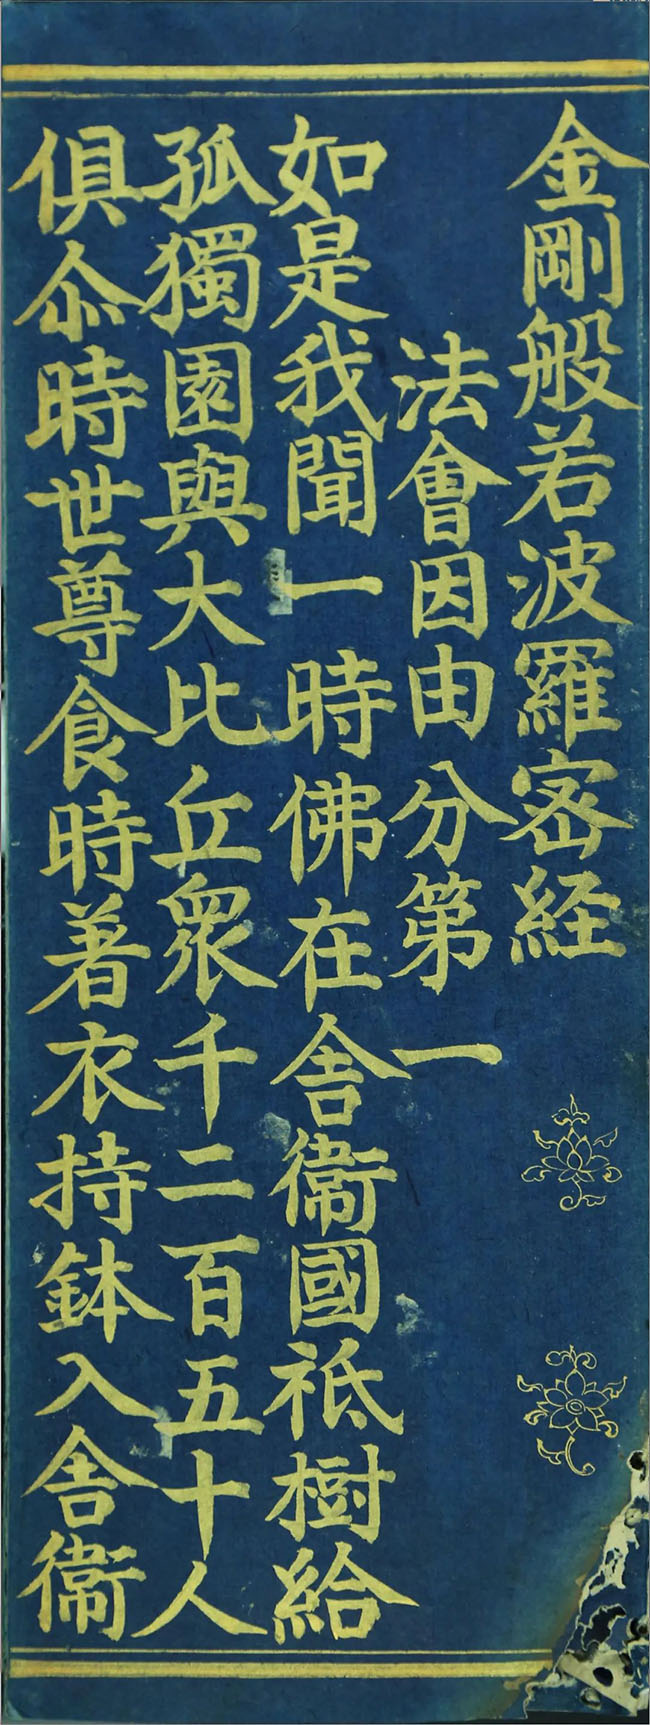 金剛般若波羅宻経
法會因由分第一
如是我聞一時佛在舎衞國祇樹給
孤獨園與大比丘衆千二百五十人
俱尒時世尊食時著衣持鉢入舎衞